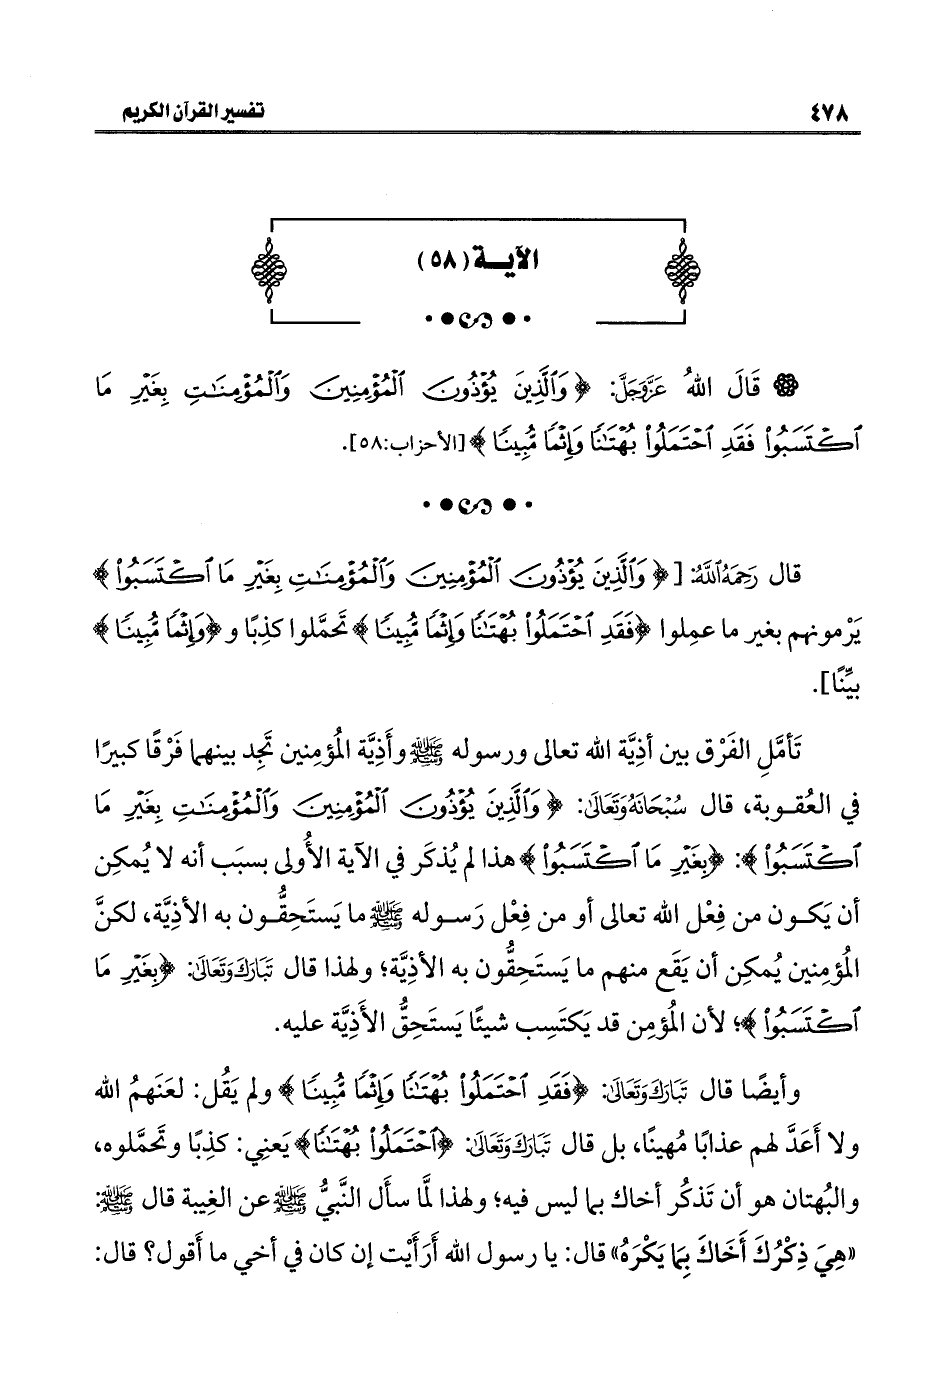 ٤٧٨ تفسير القرآن الكريم
الآيــة (٥٨)
قَالَ اللهُ عَزَّوَجَلَّ: ﴿ وَٱلَّذِينَ يُؤْذُونَ ٱلْمُؤْمِنِينَ وَٱلْمُؤْمِنَٰتِ بِغَيْرِ مَا
ٱكْتَسَبُوا۟ فَقَدِ ٱحْتَمَلُوا۟ بُهْتَٰنًا وَإِثْمًا مُّبِينًا ﴾ [الأحزاب:٥٨].
قال رَحِمَهُ ٱللَّهُ: [﴿ وَٱلَّذِينَ يُؤْذُونَ ٱلْمُؤْمِنِينَ وَٱلْمُؤْمِنَٰتِ بِغَيْرِ مَا ٱكْتَسَبُوا۟ ﴾
يَرْمونهم بغير ما عمِلوا ﴿فَقَدِ ٱحْتَمَلُوا۟ بُهْتَٰنًا وَإِثْمًا مُّبِينًا ﴾ تحَمَّلوا كذِبًا و ﴿وَإِثْمًا مُّبِينًا ﴾
بيِّنًا].
تَأمَّلِ الفَرْق بين أذِيَّة الله تعالى ورسوله ﷺ وأَذِيَّة المُؤمِنين تَجِد بينهما فَرْقًا كبيرًا
في العُقوبة، قال سُبْحَانَهُ وَتَعَالَىٰ: ﴿ وَٱلَّذِينَ يُؤْذُونَ ٱلْمُؤْمِنِينَ وَٱلْمُؤْمِنَٰتِ بِغَيْرِ مَا
ٱكْتَسَبُوا۟ ﴾: ﴿بِغَيْرِ مَا ٱكْتَسَبُوا۟ ﴾ هذا لم يُذكَر في الآية الأُولى بسبَب أنه لا يُمكِن
أن يَكون من فِعْل الله تعالى أو من فِعْل رَسوله ﷺ ما يَستَحِقُّون به الأذِيَّة، لكنَّ
المُؤمِنين يُمكِن أن يَقَع منهم ما يَستَحِقُّون به الأذِيَّة؛ ولهذا قال تَبَارَكَ وَتَعَالَىٰ: ﴿بِغَيْرِ مَا
ٱكْتَسَبُوا۟ ﴾؛ لأن المُؤمِن قد يَكتَسِب شيئًا يَستَحِقُّ الأَذِيَّة عليه.
وأيضًا قال تَبَارَكَ وَتَعَالَىٰ: ﴿فَقَدِ ٱحْتَمَلُوا۟ بُهْتَٰنًا وَإِثْمًا مُّبِينًا ﴾ ولم يَقُل: لعَنَهمُ الله
ولا أَعَدَّ لهم عذابًا مُهينًا، بل قال تَبَارَكَ وَتَعَالَىٰ: ﴿ٱحْتَمَلُوا۟ بُهْتَٰنًا﴾ يَعنِي: كذِبًا وتَحَمَّلوه،
والبُهتان هو أن تَذكُر أخاك بما ليس فيه؛ ولهذا لمَّا سأَل النَّبيُّ ﷺ عن الغِيبة قال ﷺ:
«هِيَ ذِكْرُكَ أَخَاكَ بِمَا يَكْرَهُ» قال: يا رسول الله أَرَأَيْت إن كان في أخي ما أَقول؟ قال: